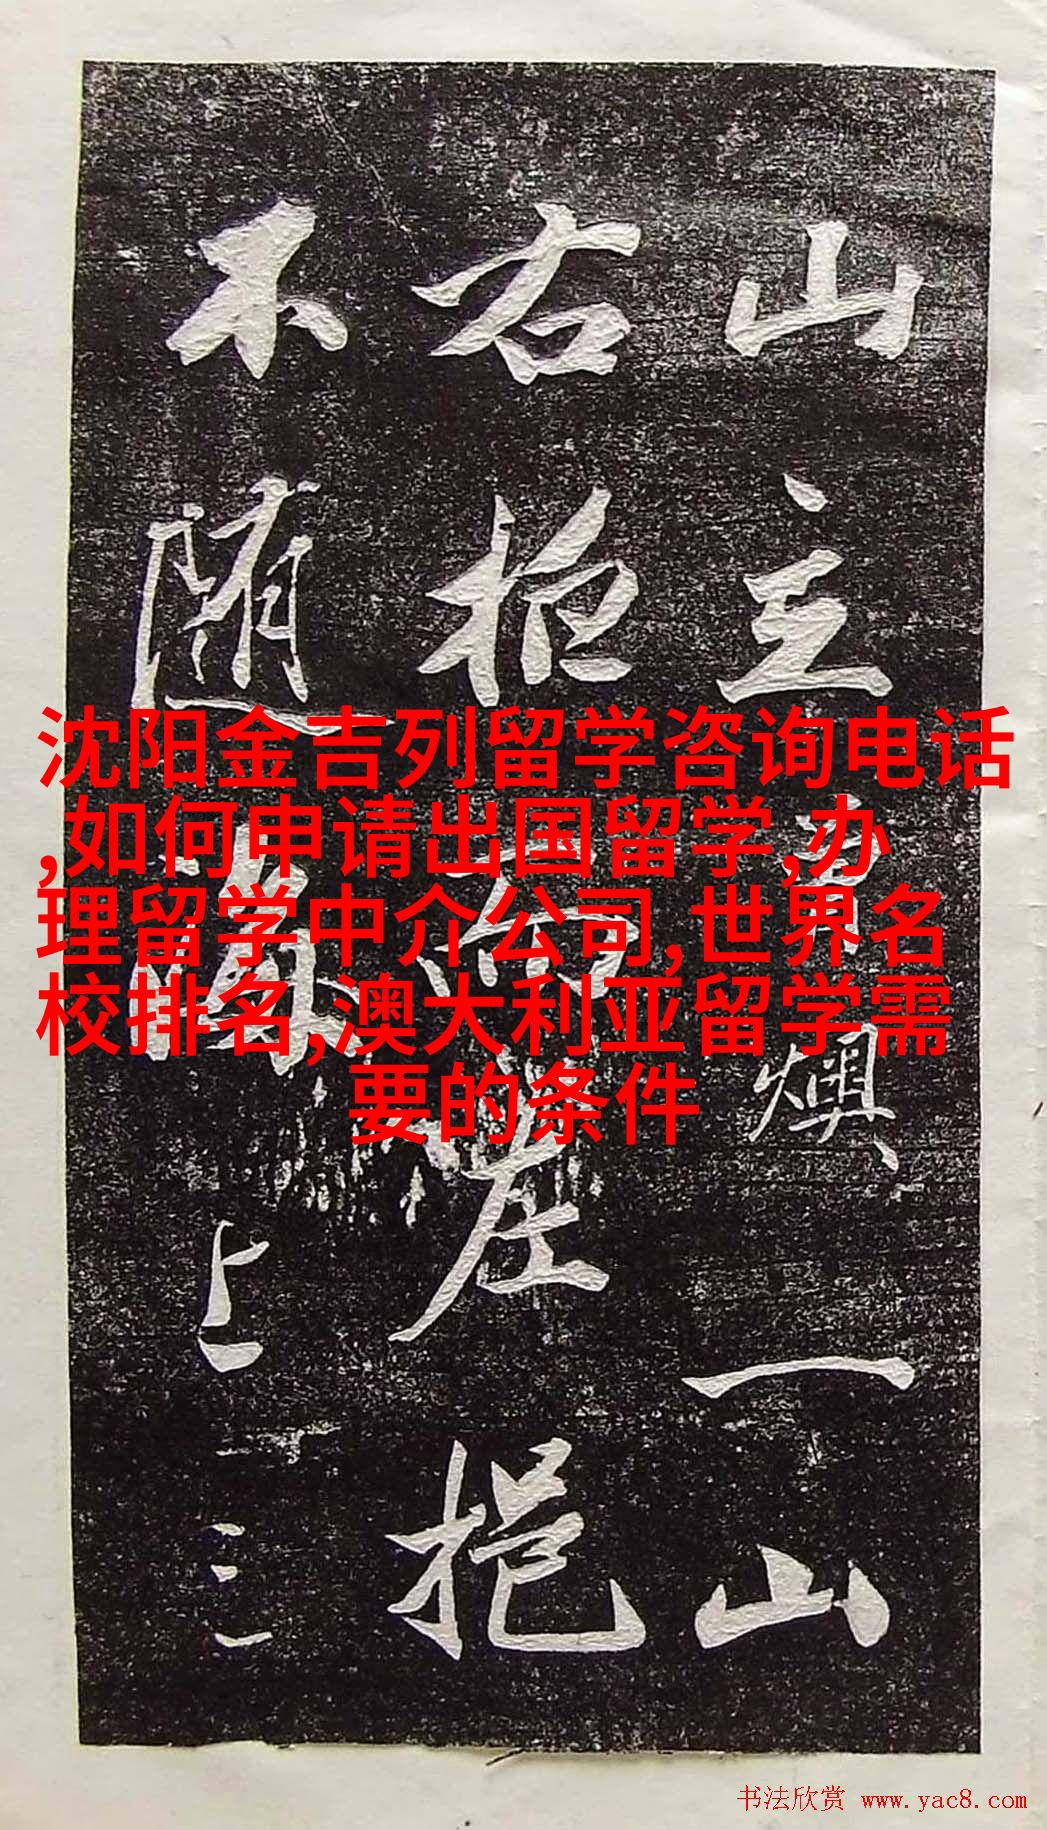 山主燠、一山
右而左挹
不随上二三
沈阳金吉列留学咨询电话
,如何申请出国留学,办
理留学中介公司,世界名
校排名,澳大利亚留学需
要的条件
书法欣赏 www.yac8.com